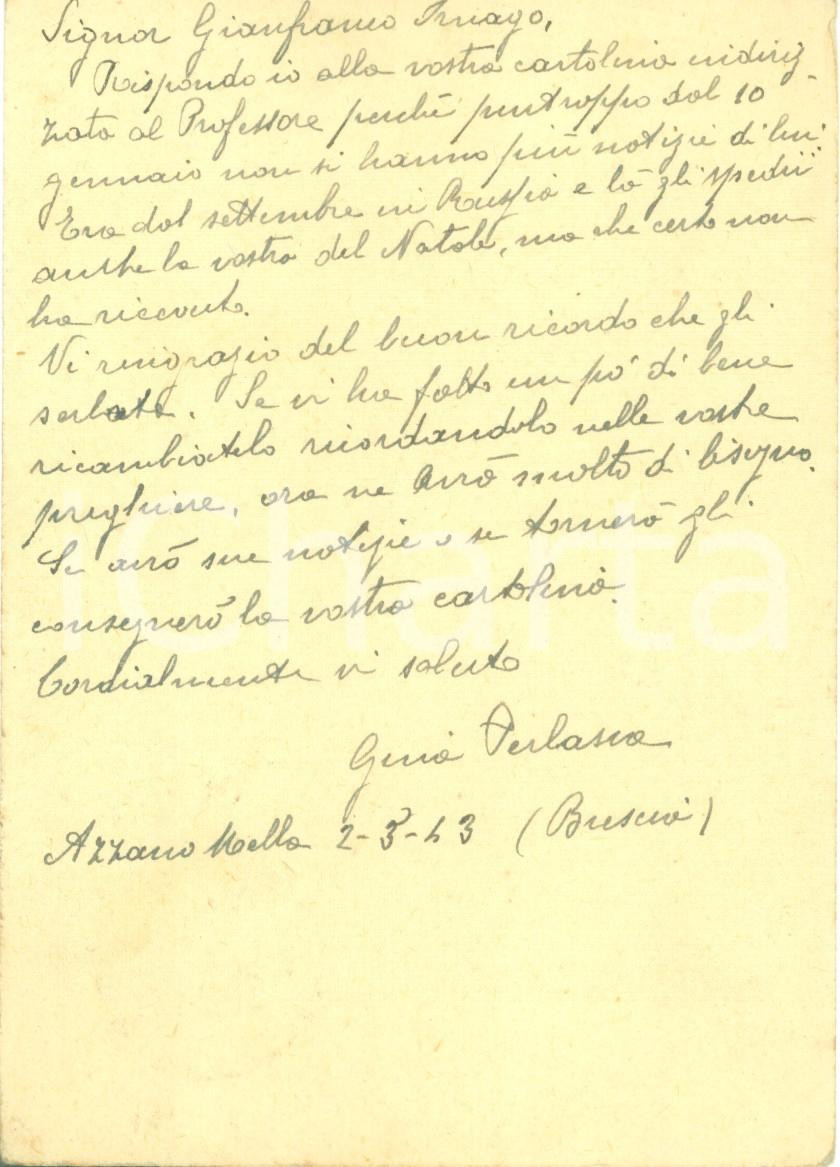 Signor Gianfranco Irnago,
Rispondo io alla vostra cartolina indiriz-
zata al Professore perchè purtroppo dal 10
gennaio non si hanno più notizie di lui.
Era dal settembre in Russia e là gli spedii
anche la vostra del Natale, ma che certo non
ha ricevuto.
Vi ringrazio del buon ricordo che gli
serbate. Se vi ha fatto un po' di bene
ricambiatelo ricordandolo nelle vostre
preghiere, ora ne avrà molto di bisogno.
Se avrò sue notizie o se tornerà gli
consegnerò la vostra cartolina.
Cordialmente vi saluto
Gina Perlasca
Azzano Mella 2-3-43 (Brescia)
iCharta